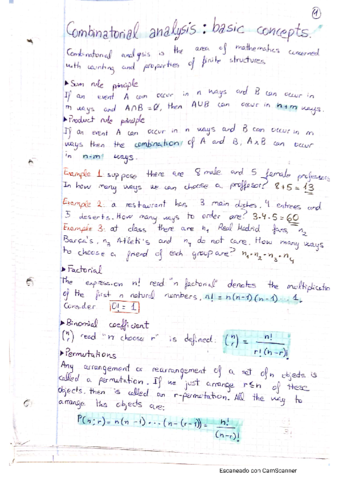 1
Combinatorial analysis: basic concepts.
Combinatorial analysis is the area of mathematics concerned
with counting and properties of finite structures.
▸Sum rule principle
If an event A can occur in n ways and B can occur in
m ways and A∩B=Ø, then A∪B can occur in n+m ways.
▸Product rule principle
If an event A can occur in n ways and B can occur in m
ways then the combination of A and B, AxB can occur
in n·m ways.
Example 1. suppose there are 8 male and 5 female professors
In how many ways we can choose a professor? 8+5=13
Example 2. a restaurant has 3 main dishes, 4 entrees and
5 deserts. How many ways to order are? 3·4·5=60
Example 3: at class there are n₁ Real Madrid fans, n₂
Barça's, n₃ Atleti's and n₄ do not care. How many ways
to choose a friend of each group are? n₁·n₂·n₃·n₄
▸Factorial
The expression n! read "n factorial" denotes the multiplication
of the first n natural numbers, n! = n(n-1)(n-1)···1.
Consider 0! = 1
▸Binomial coefficient
(n r) read "n choose r" is defined: (n r) = n! / r!(n-r)!
▸Permutations
Any arrangement or rearrangement of a set of n objects is
called a permutation. If we just arrange r≤n of these
objects, then is called an r-permutation. All the way to
arrange this objects are:
P(n,r) = n(n-1)···(n-(r-1)) = n! / (n-r)!
Escaneado con CamScanner